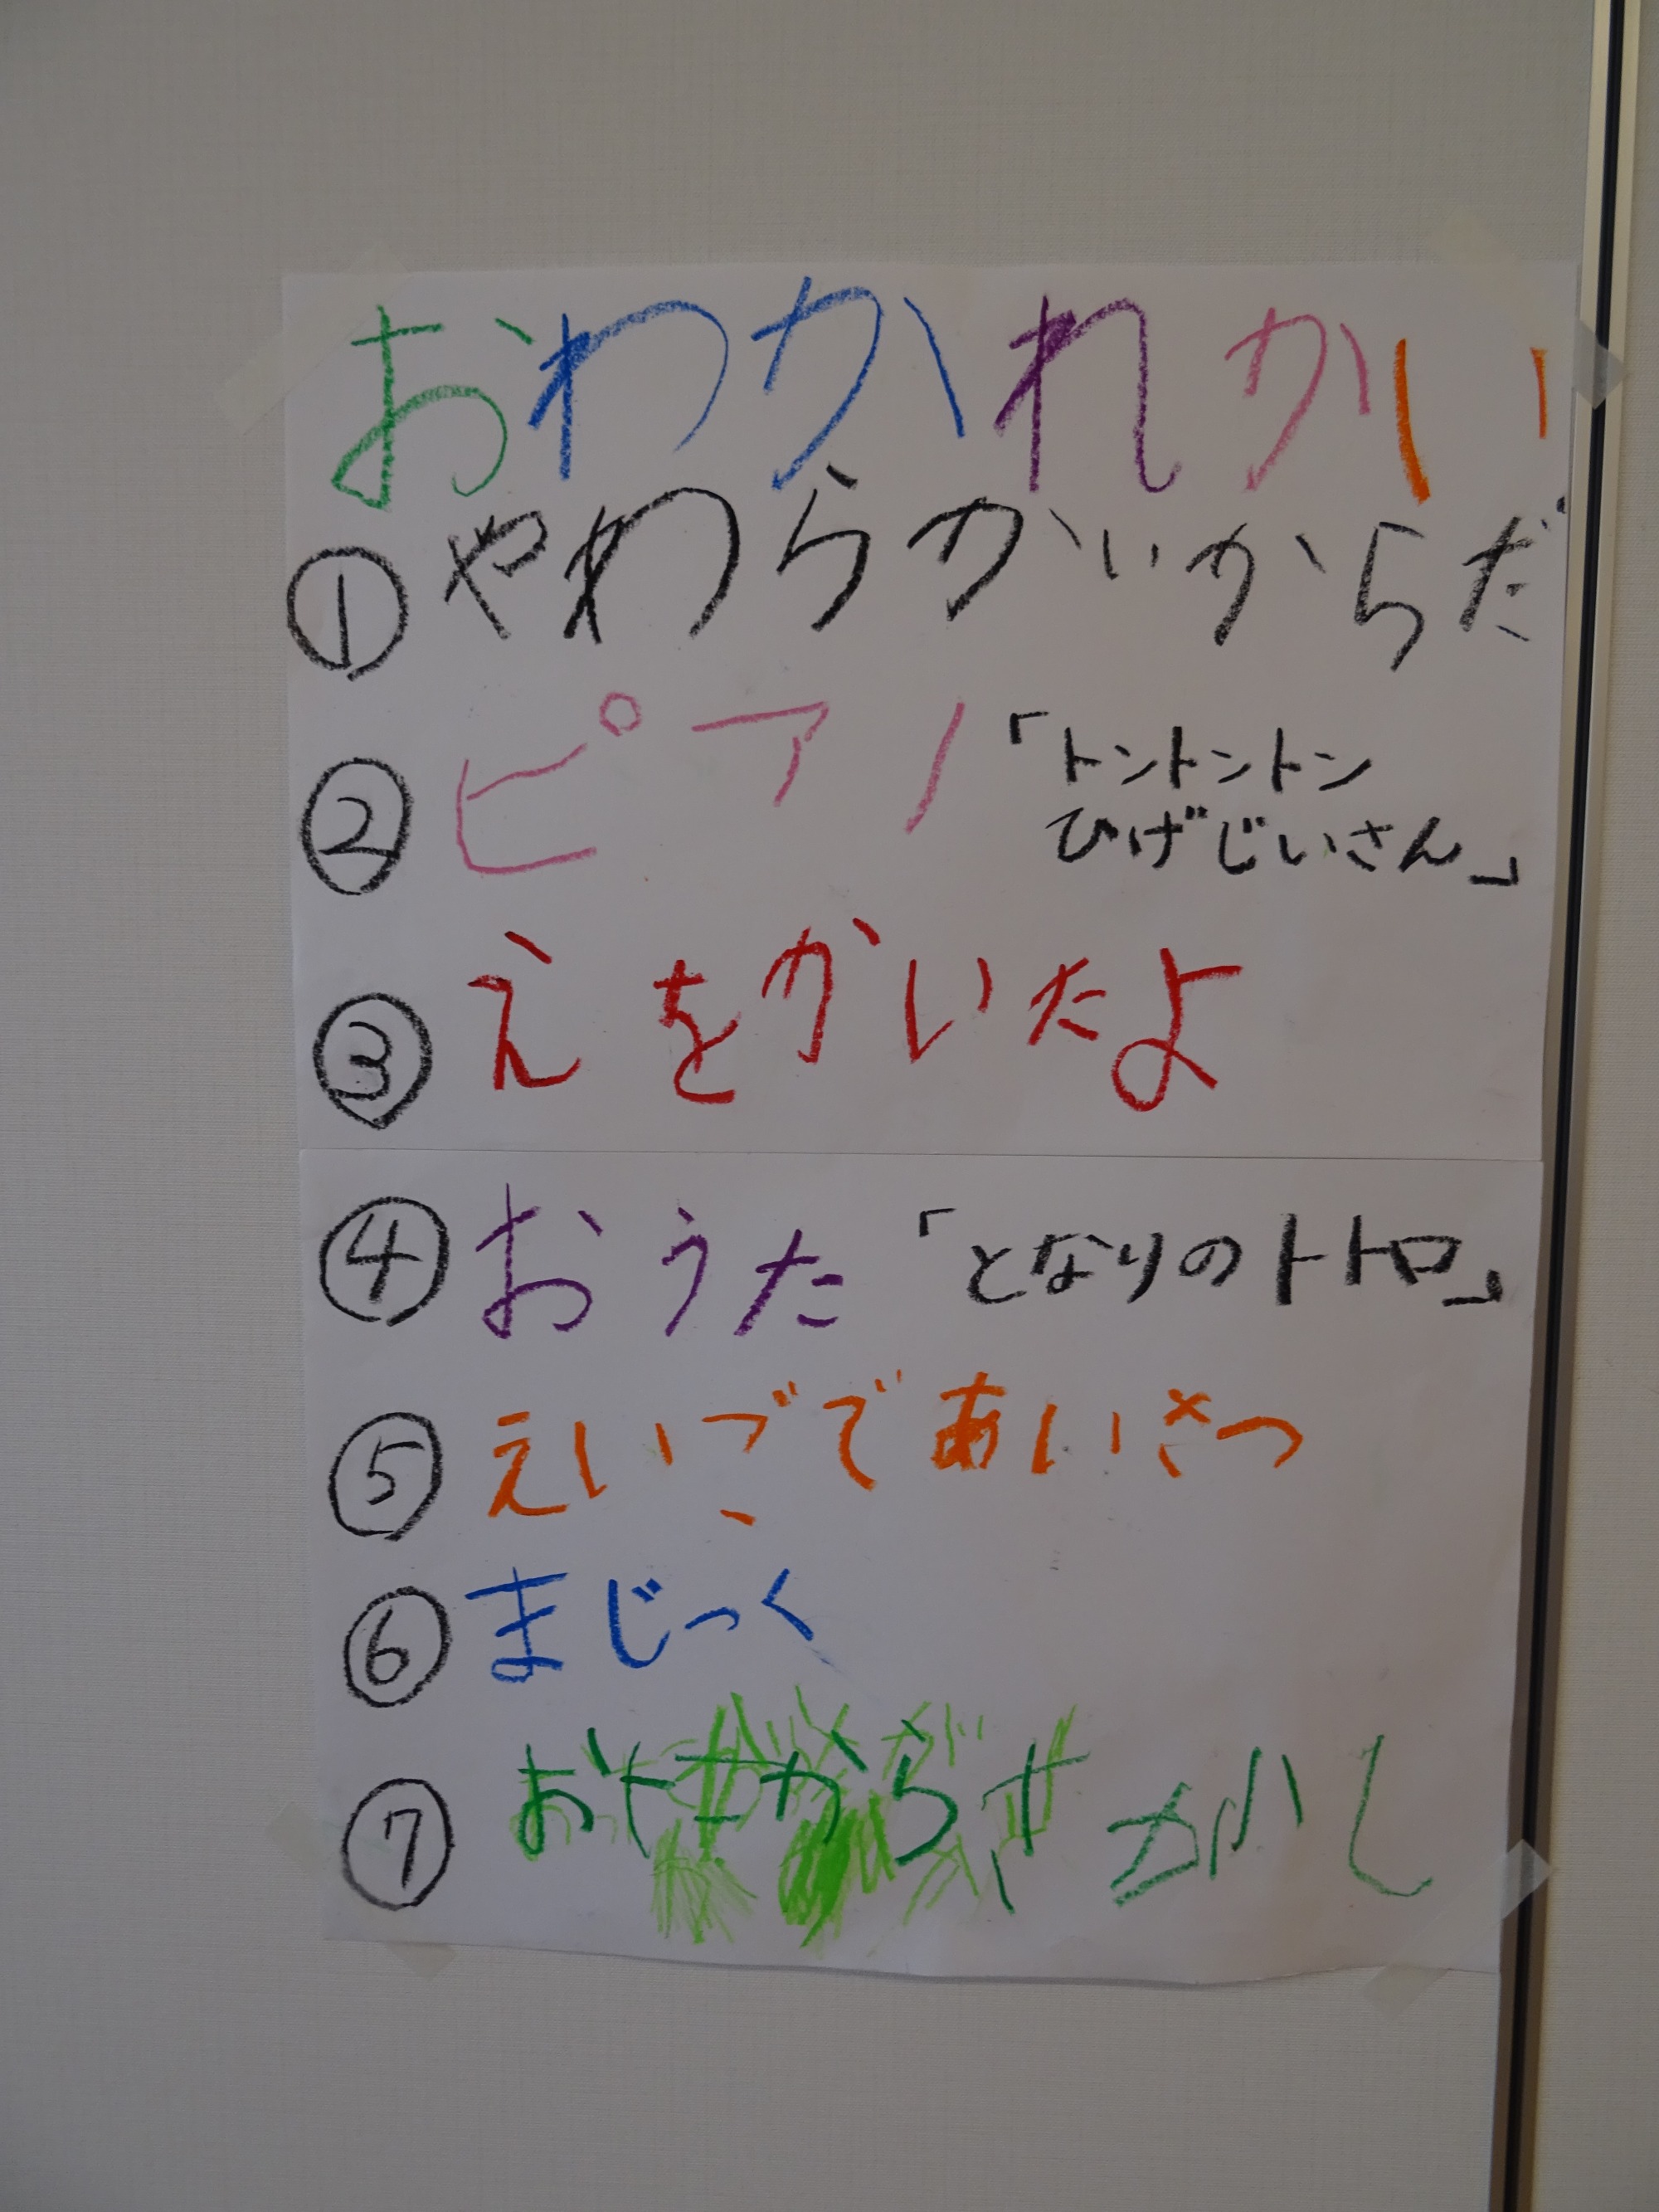 おわかれかい
① やわらかいからだ
② ピアノ 「トントントン
ひげじいさん」
③ えをかいたよ
④ おうた 「となりのトトロ」
⑤ えいごであいさつ
⑥ まじっく
⑦